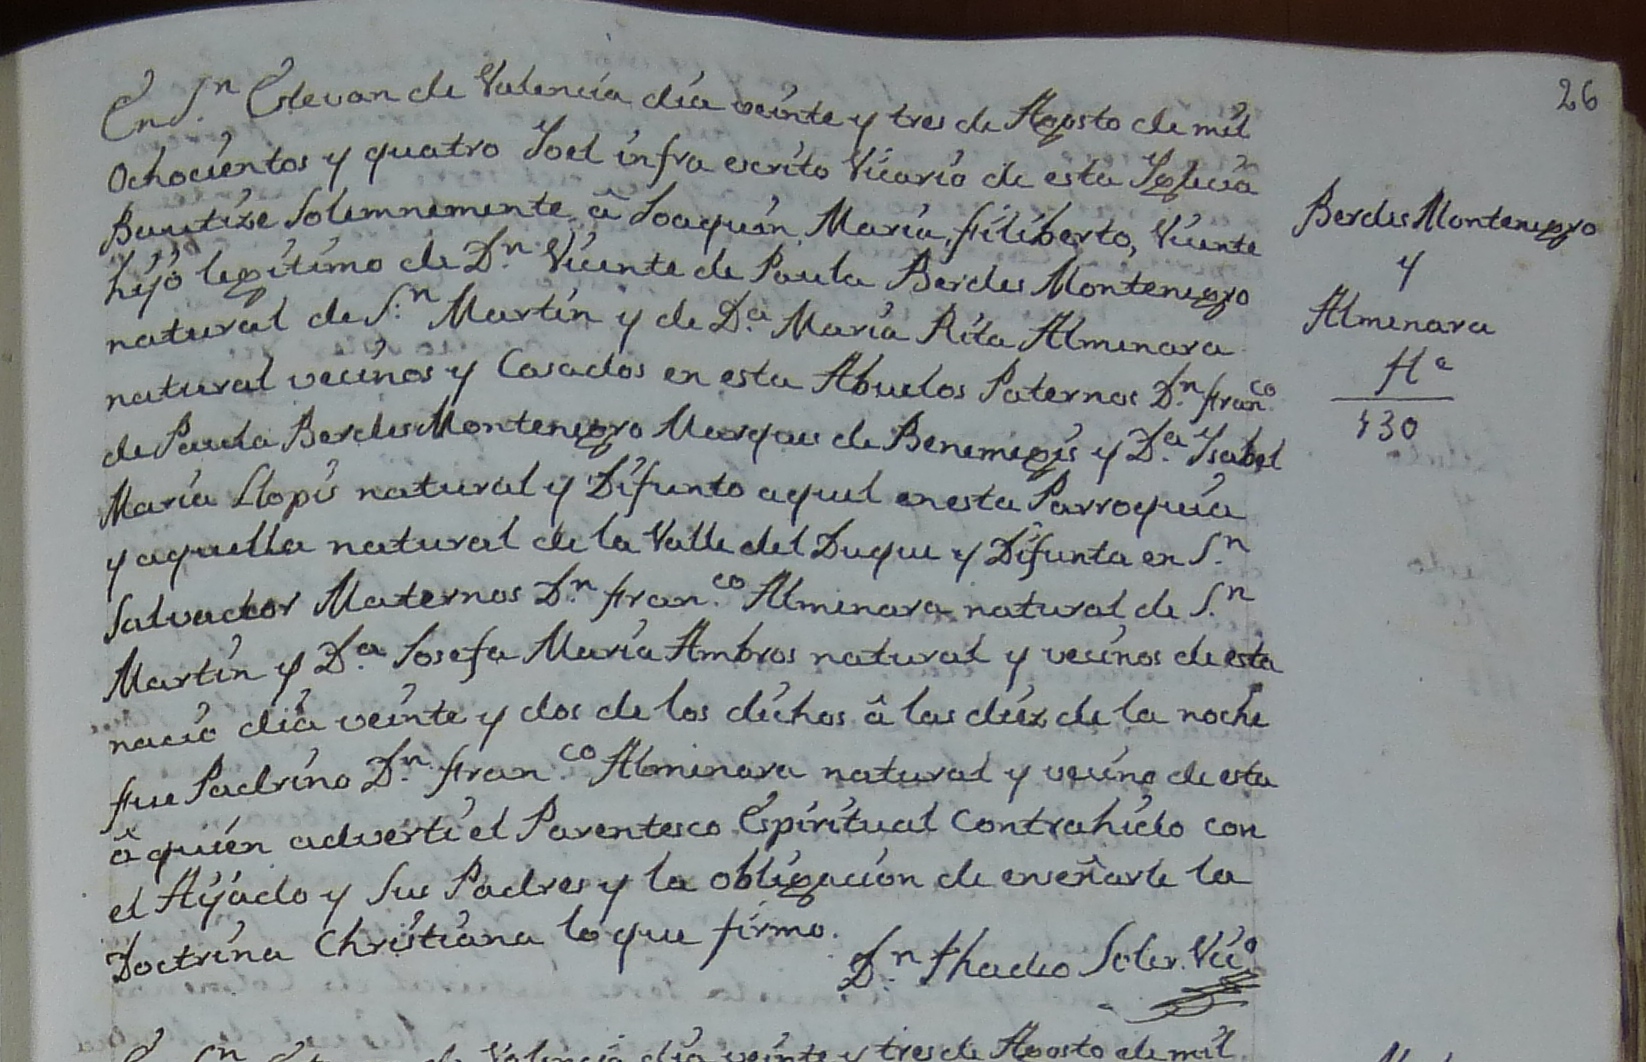 26
En S.n Estevan de Valencia dia veinte y tres de Agosto de mil
Ochocientos y quatro Yo el infra escrito Vicario de esta Yglecia
Bautize Solemnemente â Joaquin, Maria, Filiberto, Vicente
hijo legitimo de D.n Vicente de Paula Berdes Montenegro
natural de S.n Martin y de D.a Maria Rita Alminara
natural vecinos y Casados en esta Abuelos Paternos D.n Fran.co
de Paula Berdes Montenegro Marques de Benemegis y D.a Ysabel
Maria Llopis natural y Difunto aquel en esta Parroquia
y aquella natural de la Valle del Duque y Difunta en S.n
Salvador Maternos D.n Fran.co Alminara natural de S.n
Martin y D.a Josefa Maria Ambros natural y vecinos de esta
nacio dia veinte y dos de los dichos â las diez de la noche
fue Padrino D.n Fran.co Alminara natural y vecino de esta
â quien adverti el Parentesco Espiritual Contrahido con
el Hijado y Sus Padres y la obligacion de enseñarle la
Doctrina Christiana lo que firmo.
D.n Thadeo Soler Vic.o
Berdes Montenegro
y
Alminara
H a
130
En S.n Estevan de Valencia dia veinte y tres de Agosto de mil